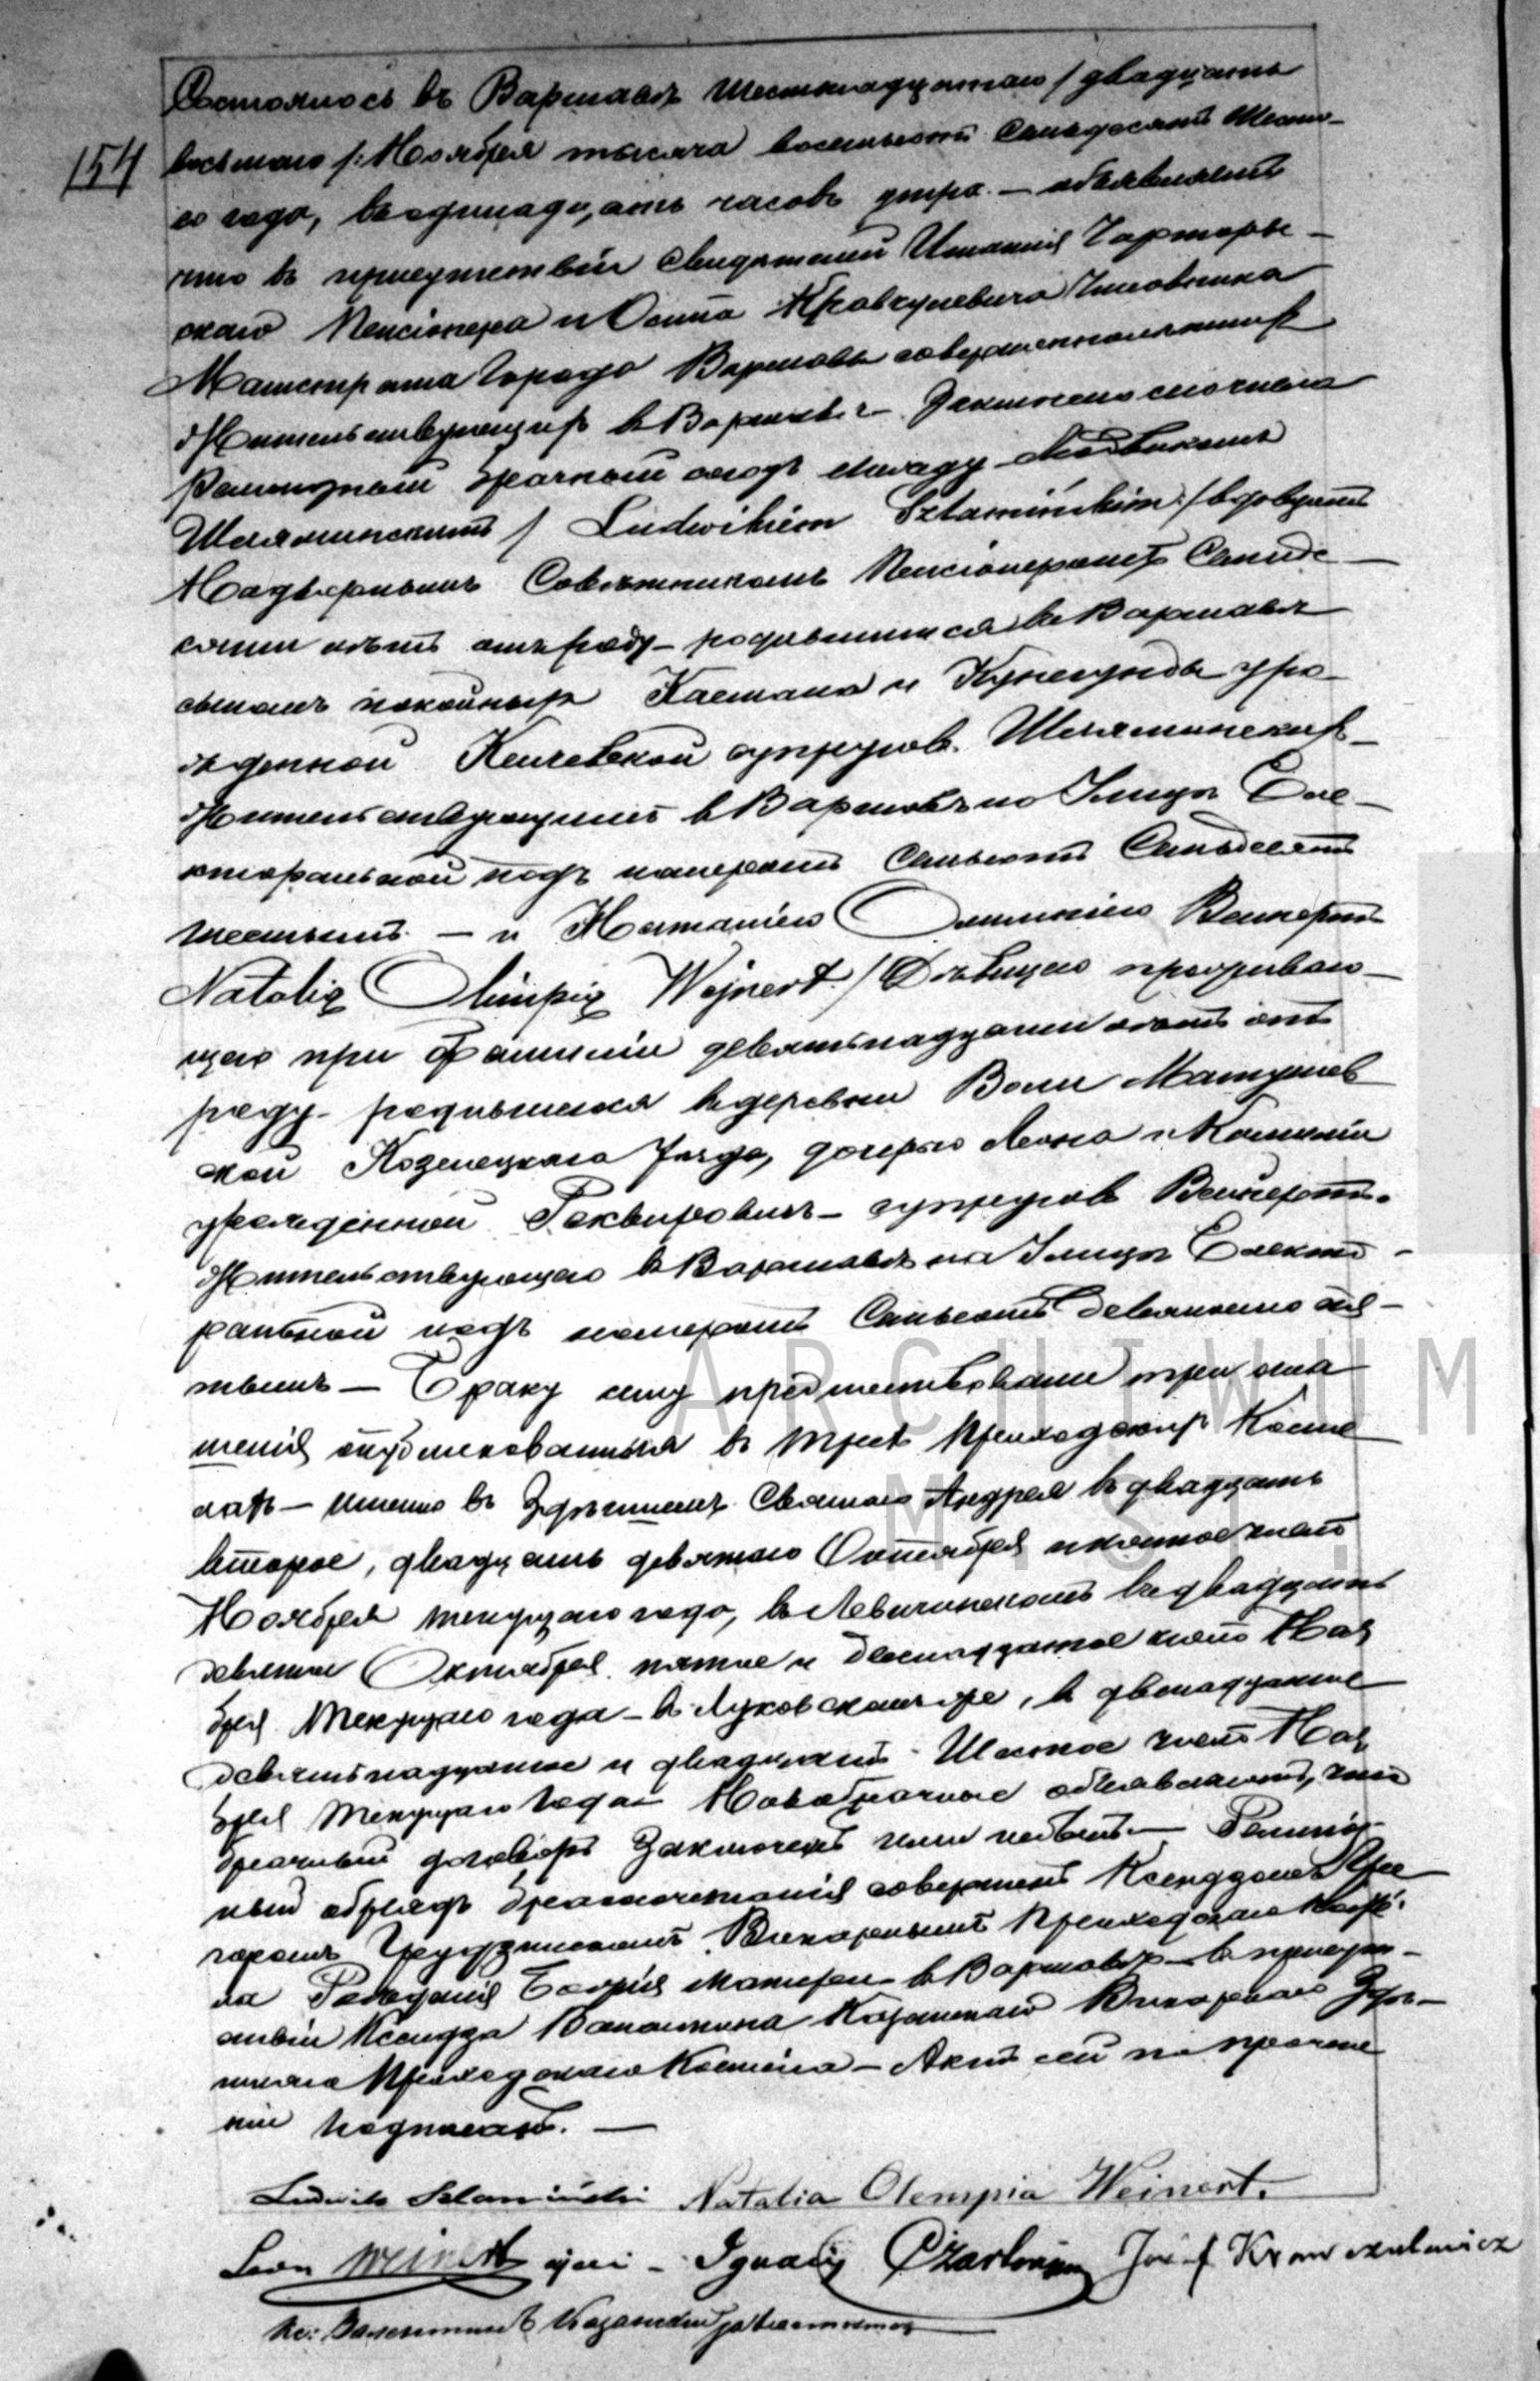 154
Состоялось въ Варшавѣ Шестнадцатаго / двадцать
восьмаго /: Ноября тысяча восемьсотъ семьдесятъ шеста-
го года, въ одинадцать часовъ утра. — объявляемъ
что въ присутствіи свидѣтелей Игнатія Чарторы-
скаго Пенсіонера и Осипа Кравчулевича Чиновника
Магистрата Города Варшавы совершеннолѣтнихъ
Жительствующихъ въ Варшавѣ — Заключенъ сего числа
Религіозный брачный союзъ между Людвикомъ
Шляминскимъ / Ludwikiem Szlamińskim :/ вдовцемъ
Надворнымъ Совѣтникомъ Пенсіонеромъ Семиде-
сяти лѣтъ отъ роду — родившимся въ Варшавѣ
сыномъ покойныхъ Каетана и Кунегунды уро-
жденной супруговъ Шляминскихъ —
Жительствующимъ въ Варшавѣ по Улицѣ Еле-
кторальной подъ номеромъ Семьсотъ Семьдесятъ
шестымъ — и Наталіею Олимпіею Вейнертъ
Natalią Olimpią Wejnert :/ Дѣвицею
щею при Фамиліи девятьнадцати лѣтъ отъ
роду — родившеюся въ деревни Воли Матушев-
ской Козеницкаго Уѣзда, дочерью Леона и Камилли
урожденной супруговъ Вейнертъ.
Жительствующею въ Варшавѣ на Улицѣ Електо-
ральной подъ номеромъ Семьсотъ девяносто пя-
тымъ — Браку сему предшествовали три огла-
шенія опубликованныя въ трехъ Приходскихъ Косте-
лахъ — именно въ Здѣшнемъ Святаго Андрея въ двадцать
второе, двадцать девятаго Октября и пятое число
Ноября текущаго года, въ въ двадцать
девятое Октября, пятое и двенадцатое число Ноя-
бря Текущаго года — въ Луковскомъ же, въ двенадцатое
девятьнадцатое и двадцать Шестое число Ноя-
бря Текущаго Года — Новобрачные объявляютъ, что
брачный договоръ Заключенъ ими небылъ — Религіоз-
ный обрядъ бракосочетанія совершенъ Ксендзомъ Гри-
горомъ Викарнымъ Приходскаго Косте-
ла Рождения Божія Матери въ Варшавѣ — въ присут-
ствіи Ксендза Валентина Викарнаго Здѣ-
шняго Приходскаго Костела — Актъ сей по прочте-
ніи подписанъ. —
Ludwik Szlamiński Natalia Olempia Weinert.
Leon Weinert ojciec - Ignacy Czartoryski Józef Krawczulewicz
Кс: Валентинъ
ARCHIWUM
M. ST.